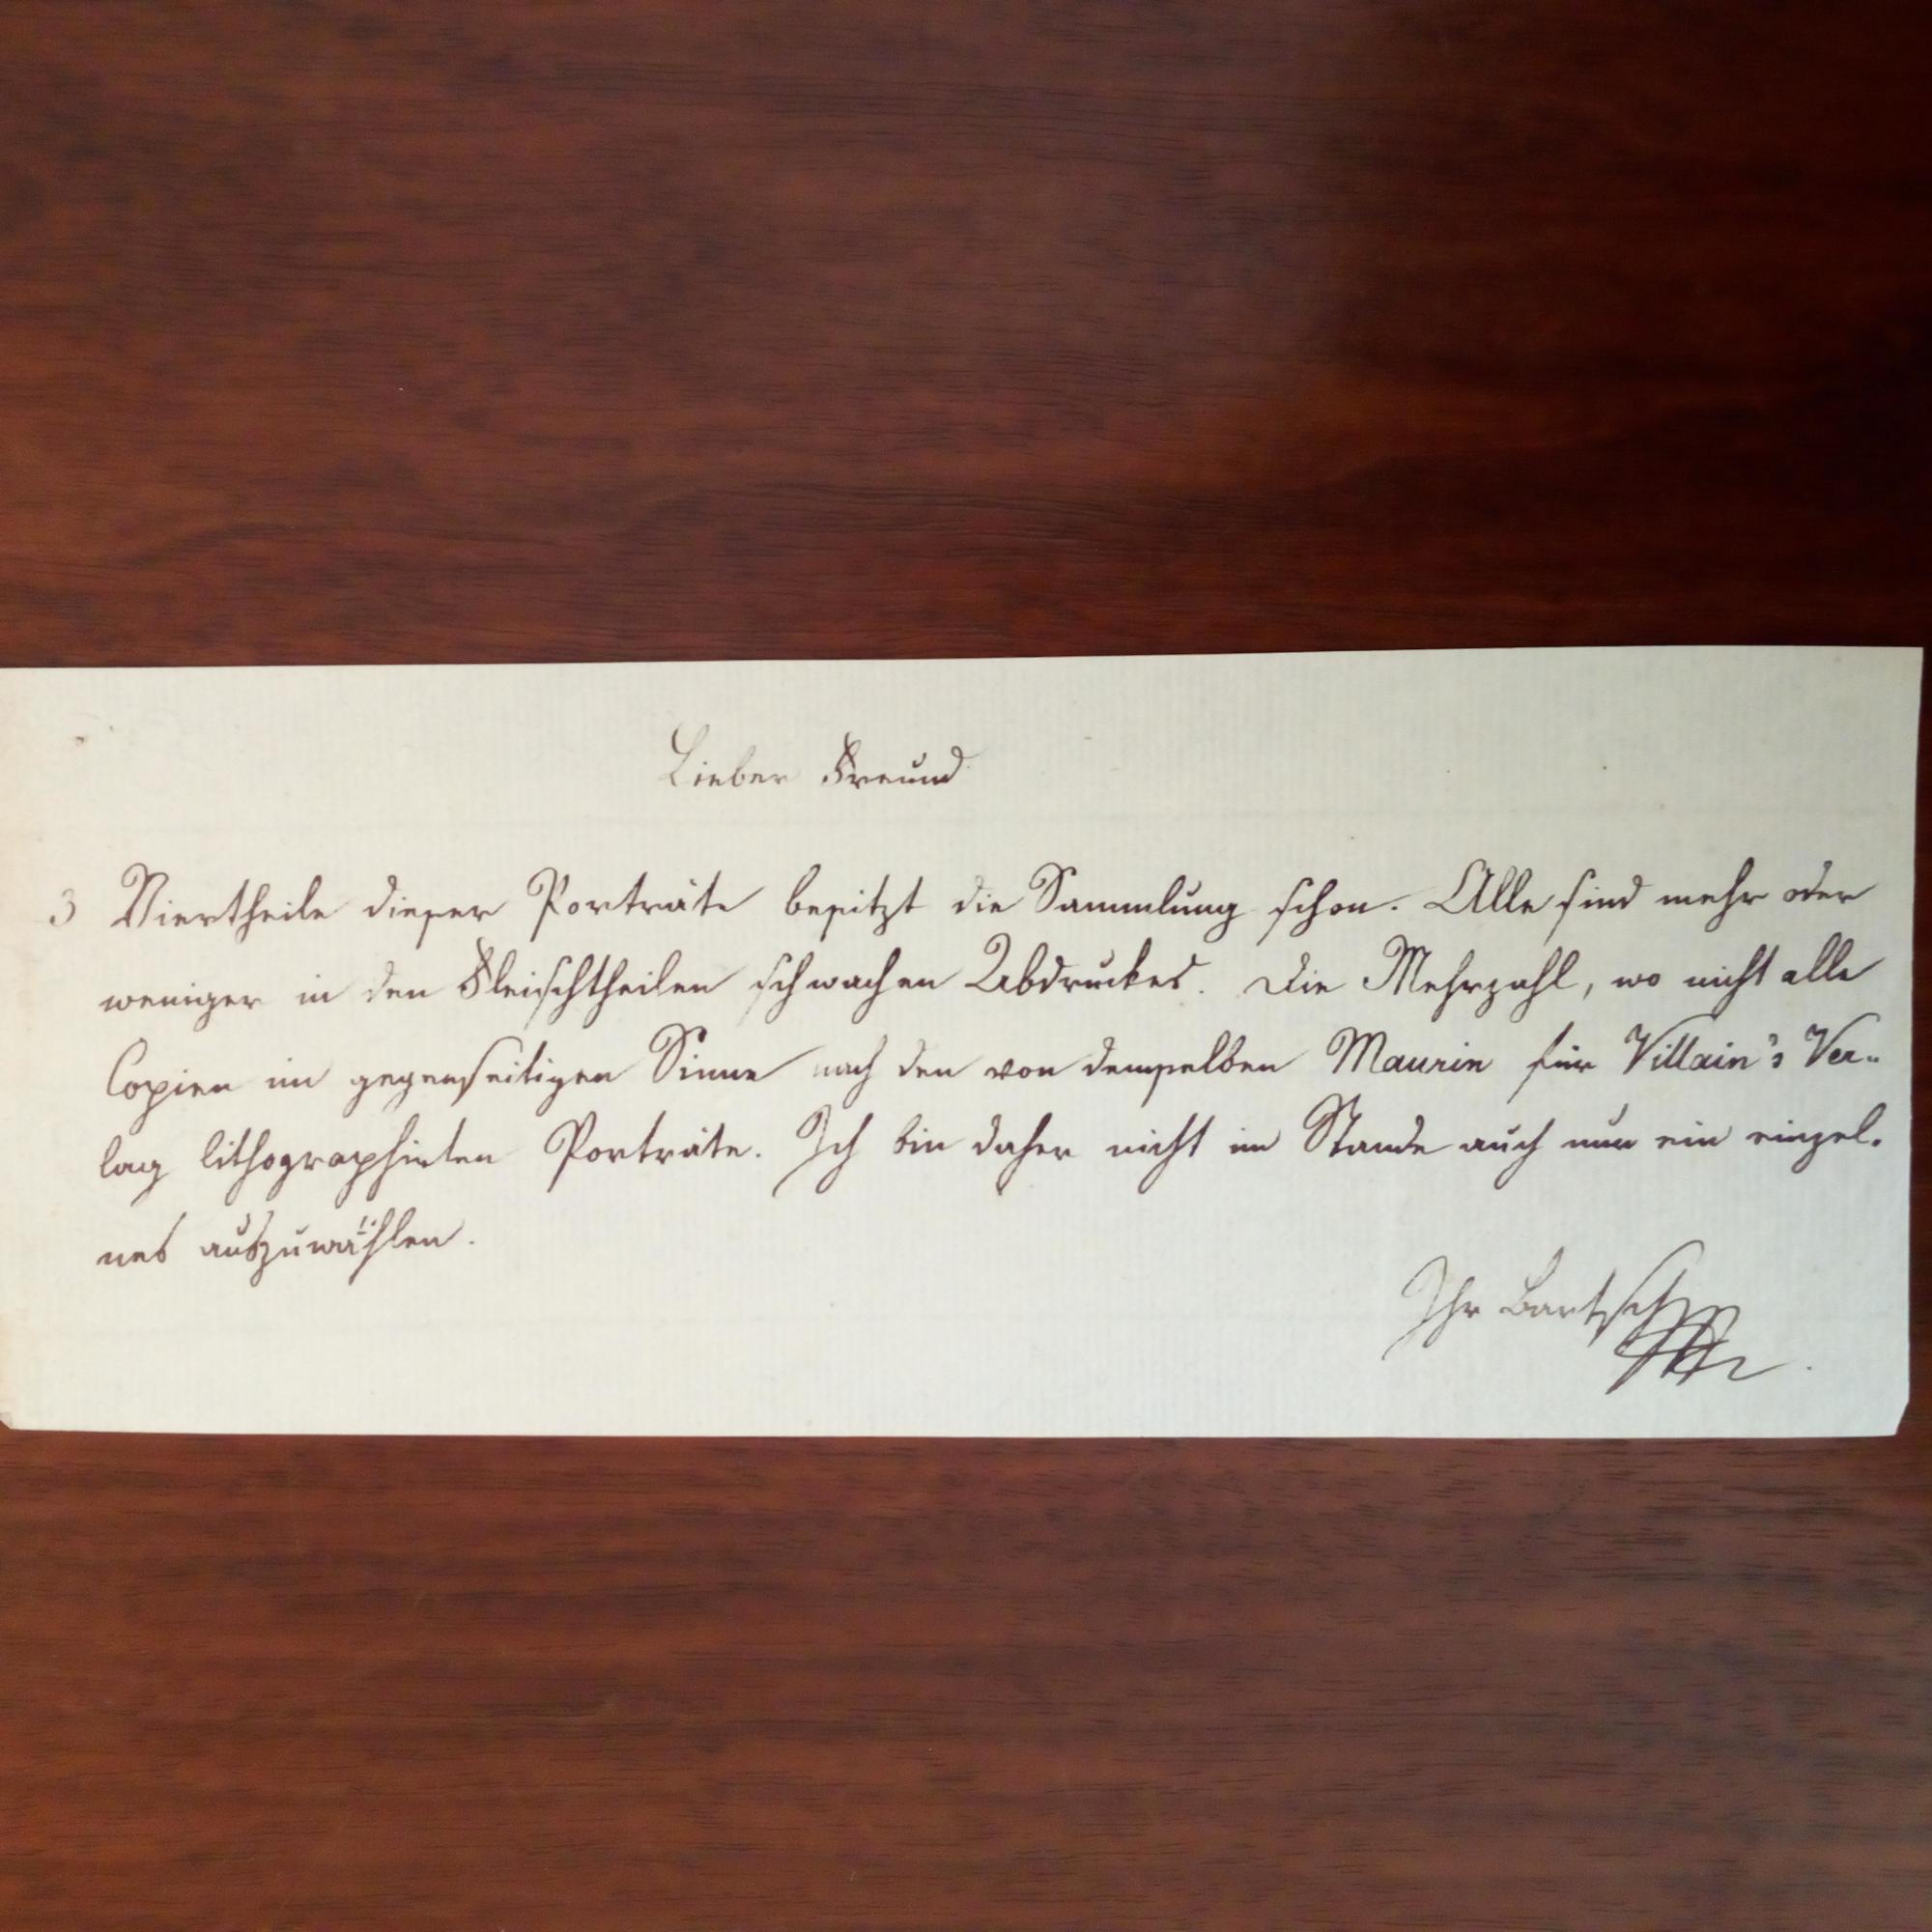 Lieber Freund
3 Viertheile dieser Porträte besitzt die Sammlung schon. Alle sind mehr oder
weniger in den Fleischtheilen schwachen Abdruckes. Die Mehrzahl, wo nicht alle
Copien im gegenseitigen Sinne nach den von demselben Maurin für Villain's Ver-
lag lithographirten Porträte. Ich bin daher nicht im Stande auch nur ein einzel-
nes auszuwählen.
Ihr Bartsch